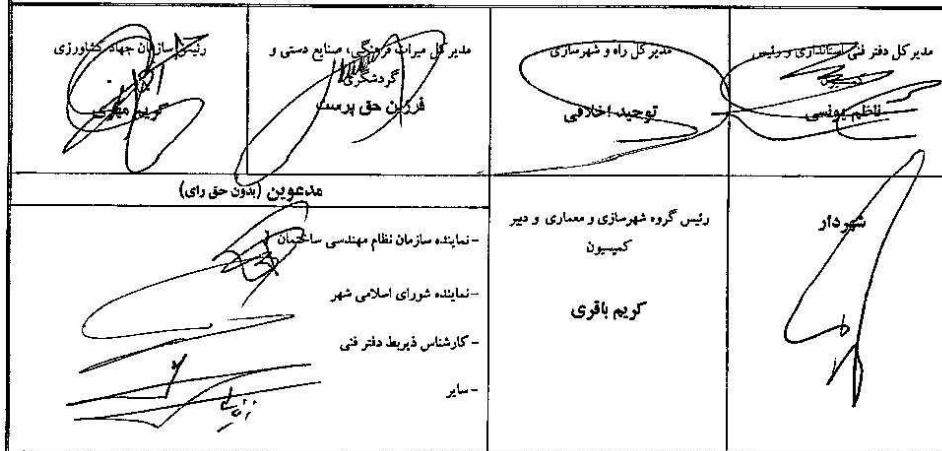 مدیر کل دفتر فنی استانداری و رئیس
ناظم یونسی
مدیر کل راه و شهرسازی
توحید اخلاقی
مدیر کل میراث فرهنگی، صنایع دستی و
گردشگری
فرزین حق پرست
رئیس سازمان جهاد کشاورزی
کریم
شهردار
رئیس گروه شهرسازی و معماری و دبیر
کمیسیون
کریم باقری
مدعوین (بدون حق رای)
-نماینده سازمان نظام مهندسی ساختمان
-نماینده شورای اسلامی شهر
- کارشناس ذیربط دفتر فنی
- سایر